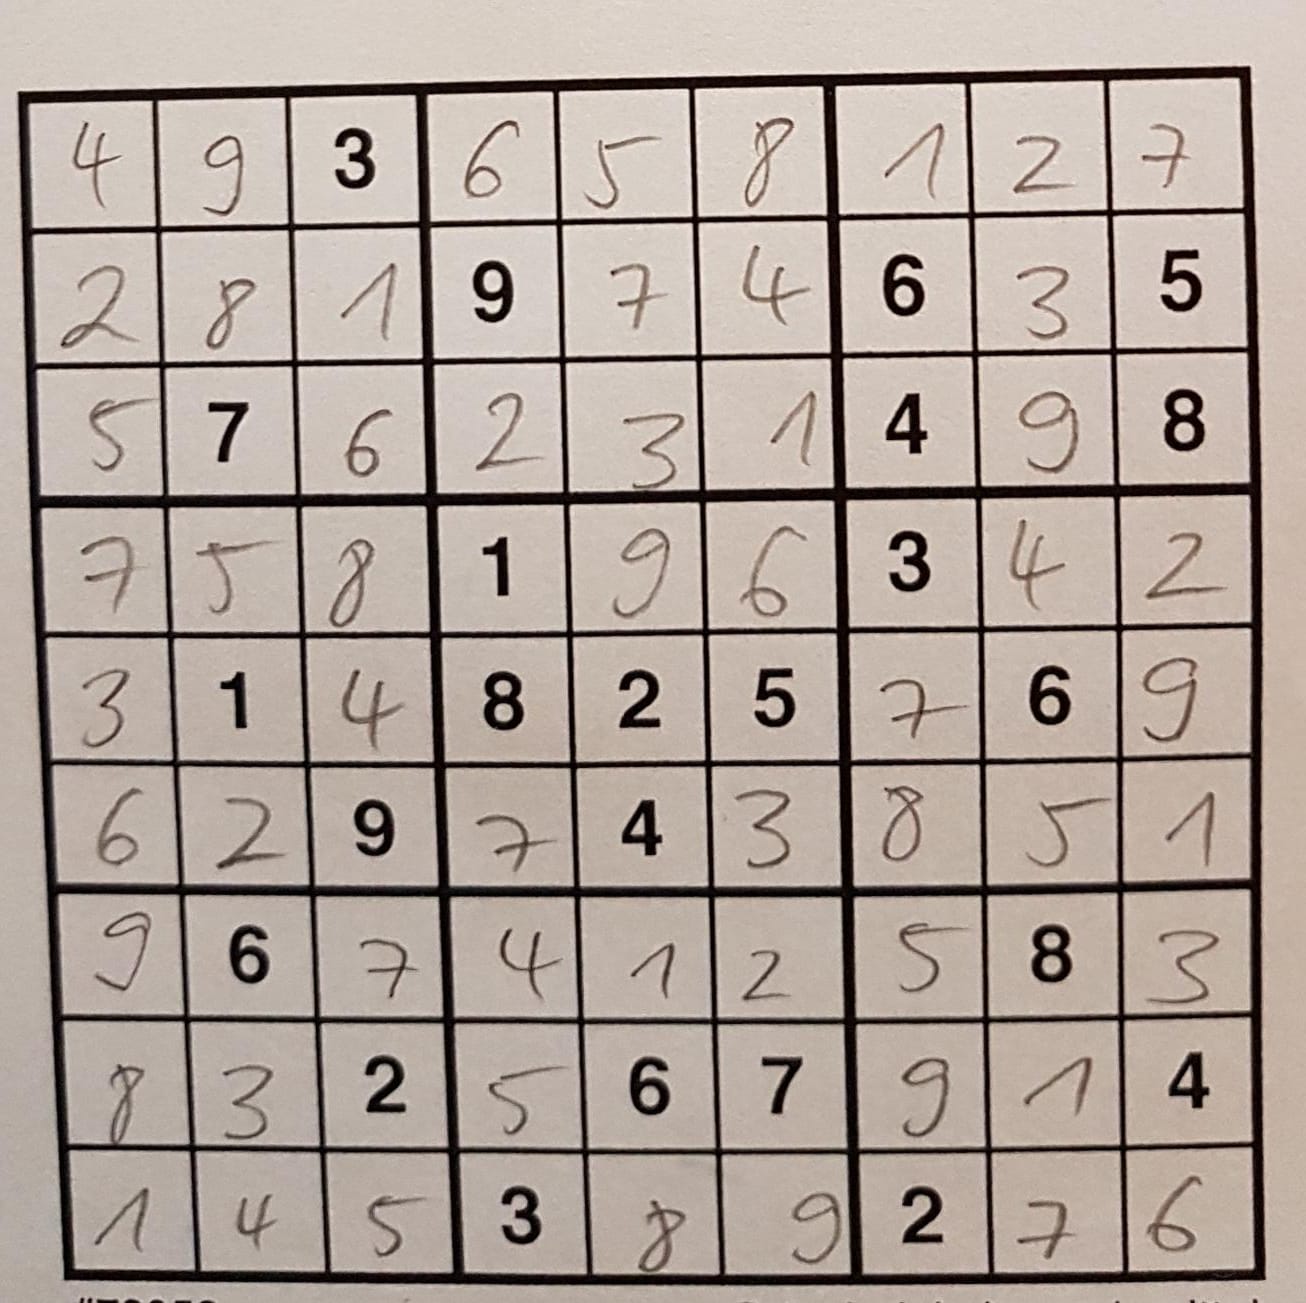 4 9 3 6 5 8 1 2 7
2 8 1 9 7 4 6 3 5
5 7 6 2 3 1 4 9 8
7 5 8 1 9 6 3 4 2
3 1 4 8 2 5 7 6 9
6 2 9 7 4 3 8 5 1
9 6 7 4 1 2 5 8 3
8 3 2 5 6 7 9 1 4
1 4 5 3 8 9 2 7 6